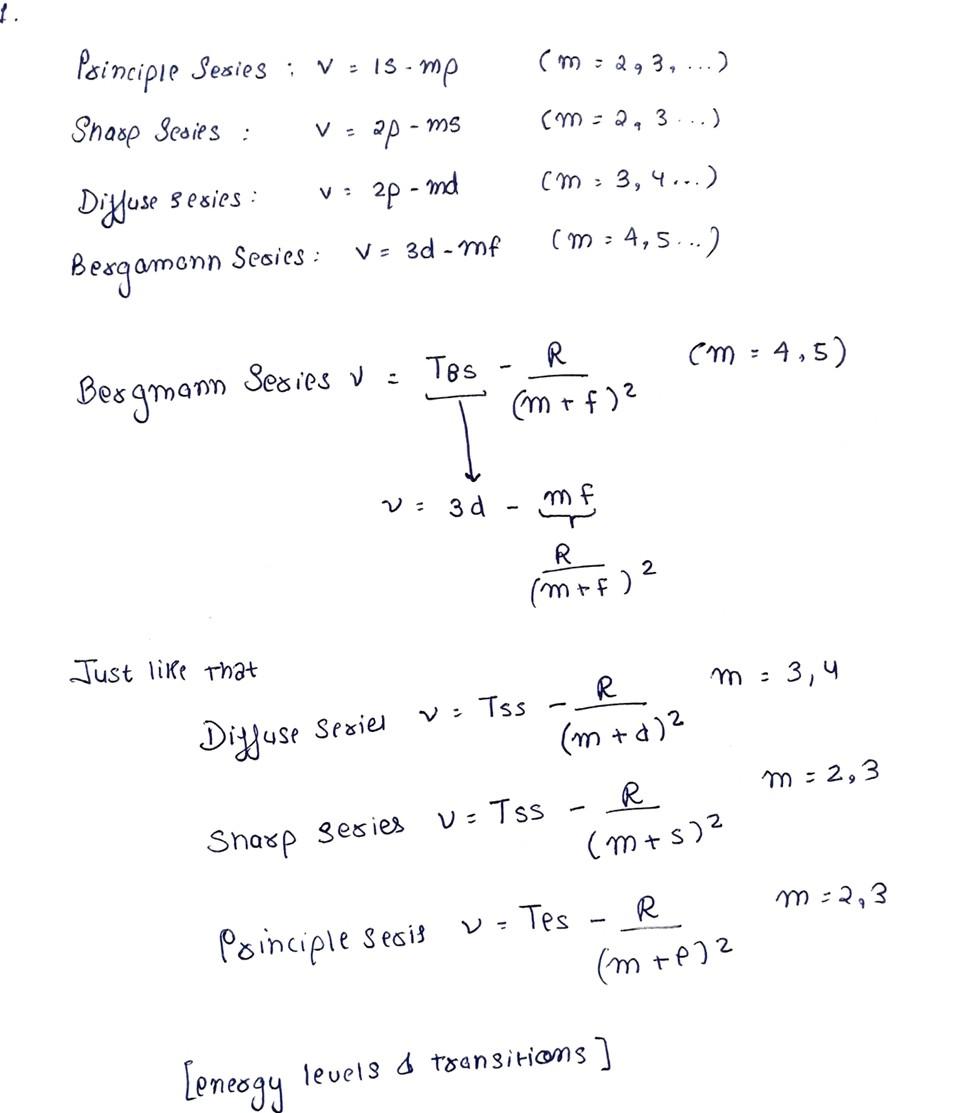 1.
Principle Series : ν = 1s - mp (m = 2, 3, ...)
Sharp Series : ν = 2p - ms (m = 2, 3 ...)
Diffuse series : ν = 2p - md (m = 3, 4 ...)
Bergamann Series : ν = 3d - mf (m = 4, 5 ...)
Bergmann Series ν = TBS - R/(m + f)² (m = 4, 5)
ν = 3d - mf
R/(m+f)²
Just like that
Diffuse Series ν = Tss - R/(m + d)² m = 3, 4
Sharp series ν = Tss - R/(m + s)² m = 2, 3
Principle seris ν = Tps - R/(m + p)² m = 2, 3
[energy levels & transitions]